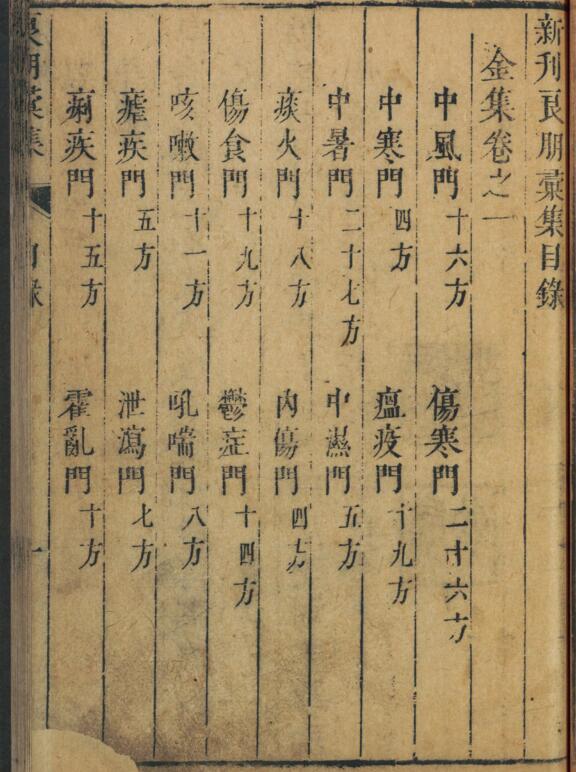 新刊良朋彙集目錄
金集卷之一
中風門 十六方 傷寒門 二十六方
中寒門 四方 瘟疫門 十九方
中暑門 二十七方 中濕門 五方
痰火門 十八方 內傷門 四方
傷食門 十九方 鬱症門 十四方
咳嗽門 十一方 吼喘門 八方
瘧疾門 五方 泄瀉門 七方
痢疾門 十五方 霍亂門 十方
良朋彙集 目錄 一